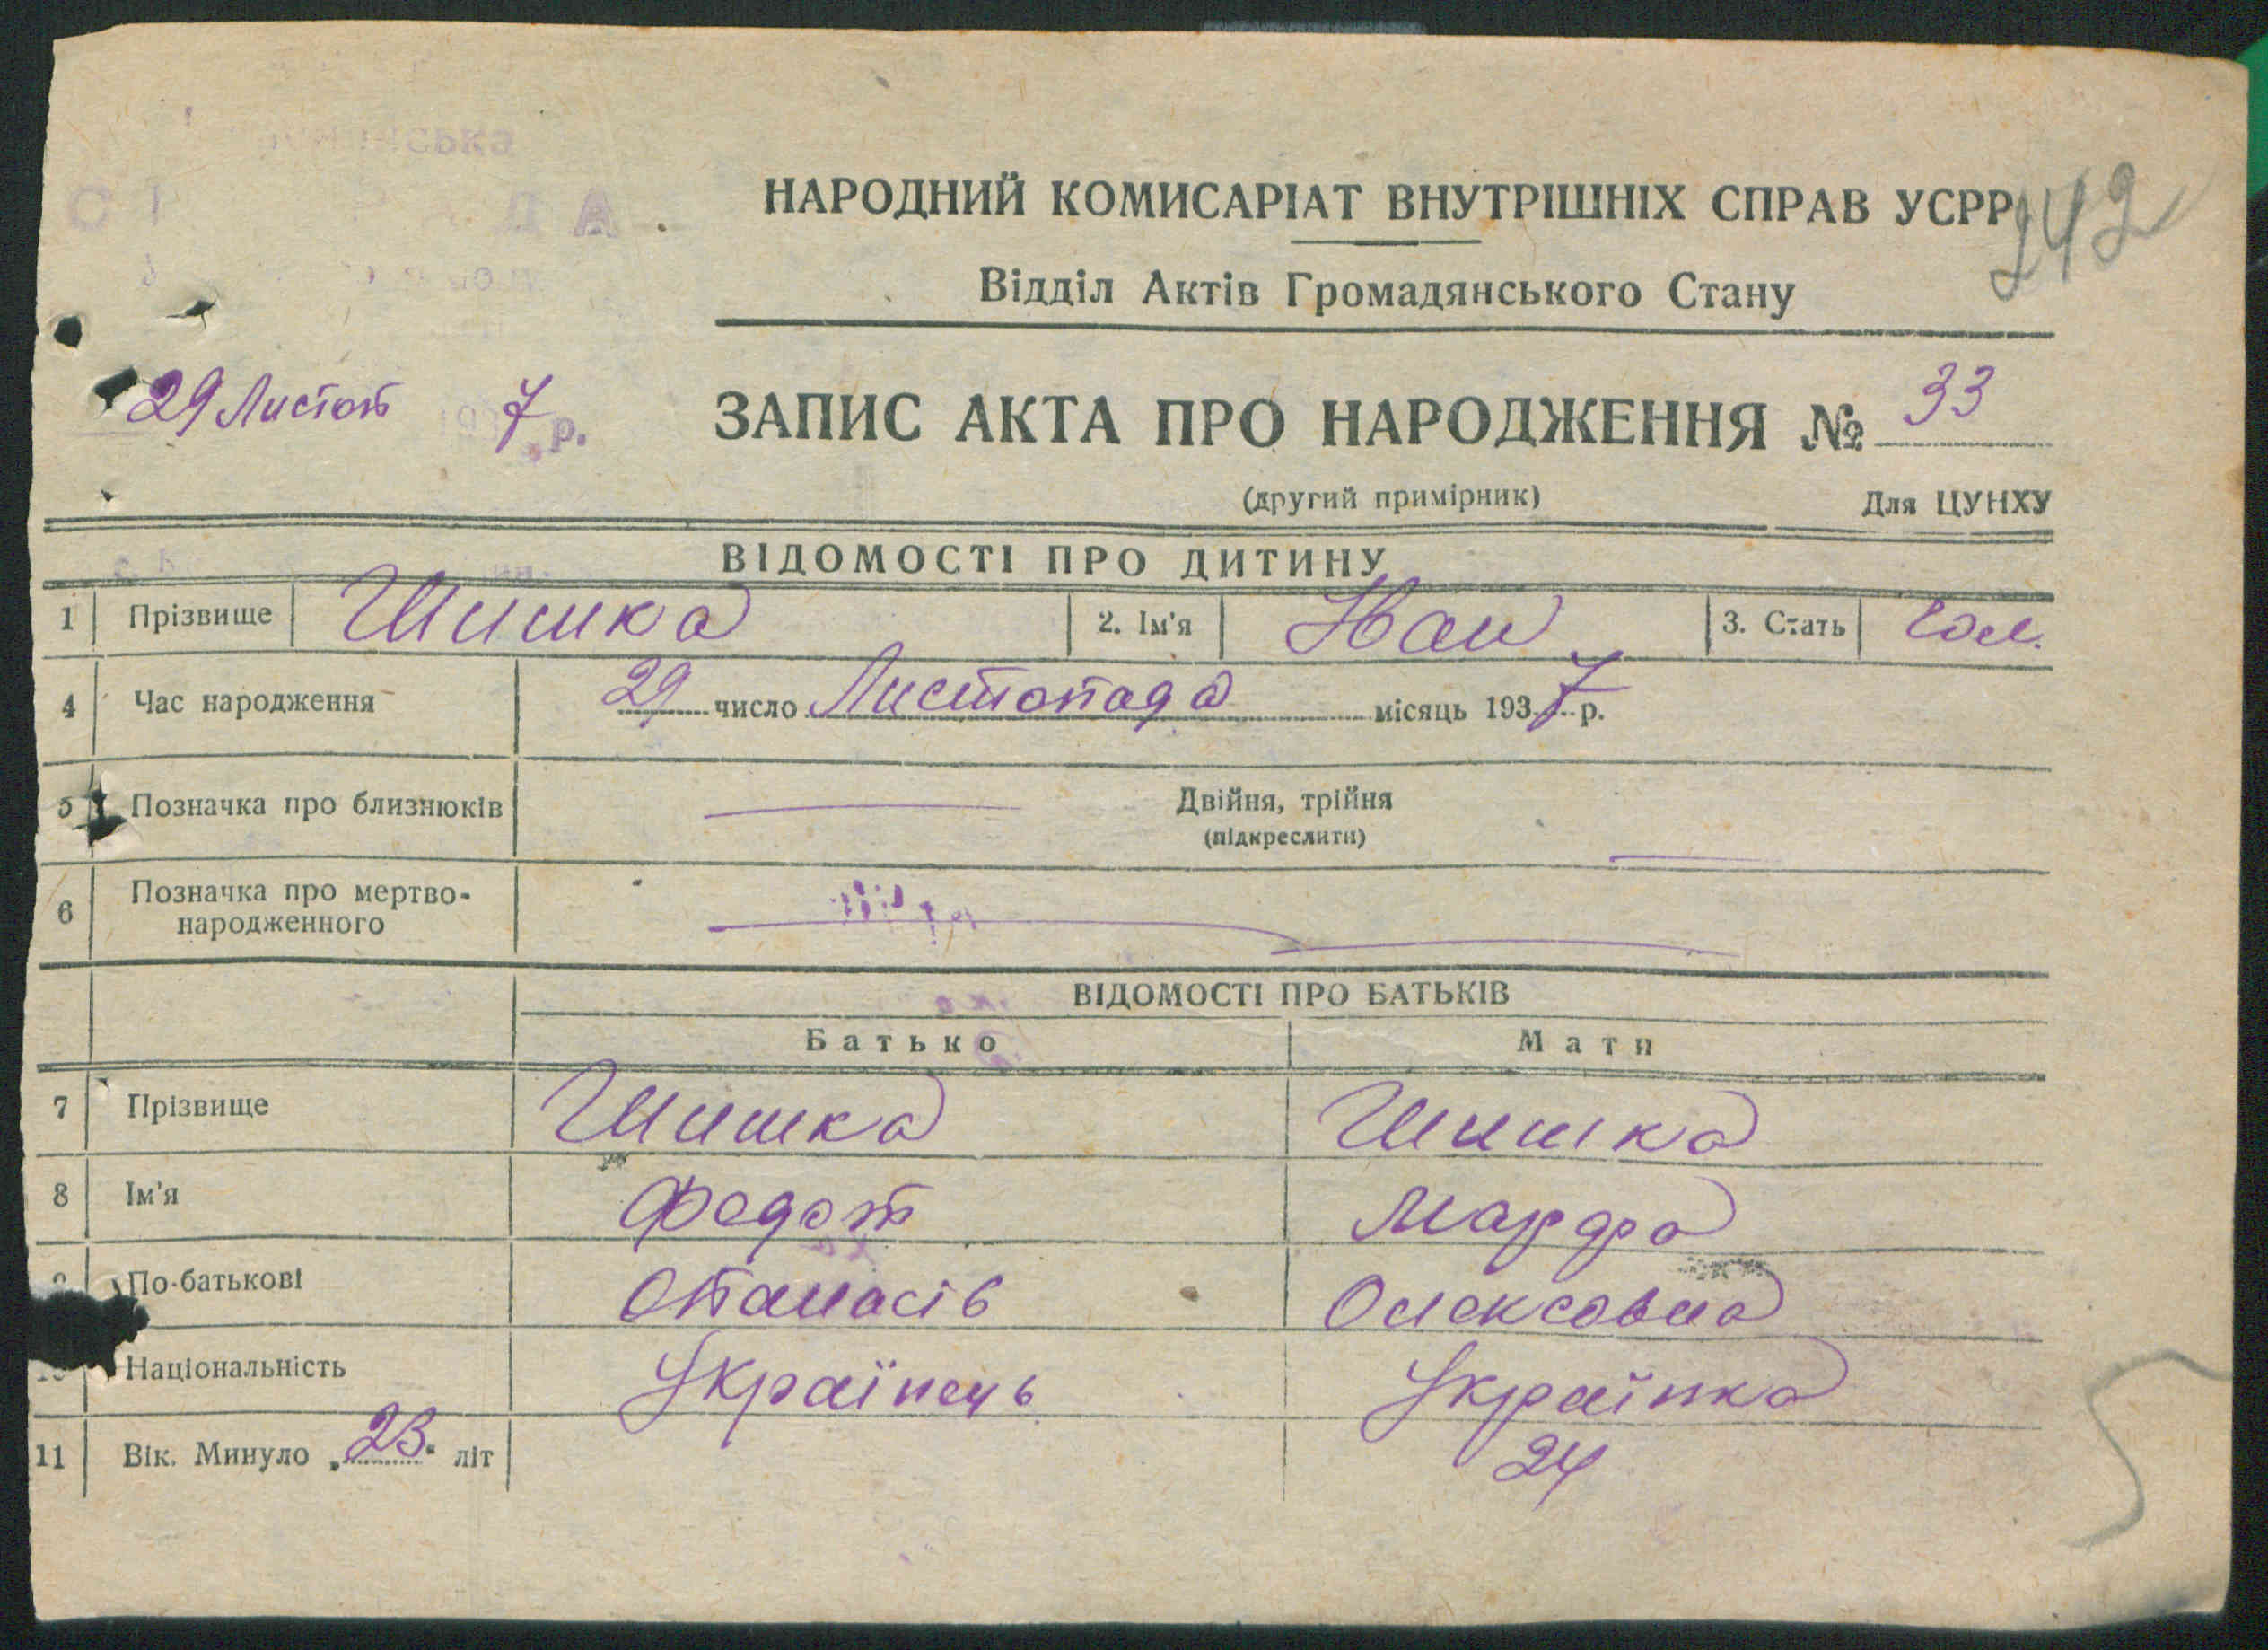 НАРОДНИЙ КОМИСАРІАТ ВНУТРІШНІХ СПРАВ УСРР
242
Відділ Актів Громадянського Стану
29 Листоп 7 р.
ЗАПИС АКТА ПРО НАРОДЖЕННЯ № 33
(другий примірник) Для ЦУНХУ
ВІДОМОСТІ ПРО ДИТИНУ
1 Прізвище Шишка 2. Ім'я Іван 3. Стать Чол.
4 Час народження 29 число Листопада місяць 1937 р.
5 Позначка про близнюків Двійня, трійня
(підкреслити)
6 Позначка про мертво-
народженного
ВІДОМОСТІ ПРО БАТЬКІВ
Батько Мати
7 Прізвище Шишка Шишка
8 Ім'я Федот Марфа
По-батькові Опанасів Олексовна
Національність Українець Українка
11 Вік. Минуло 23 літ 24
5